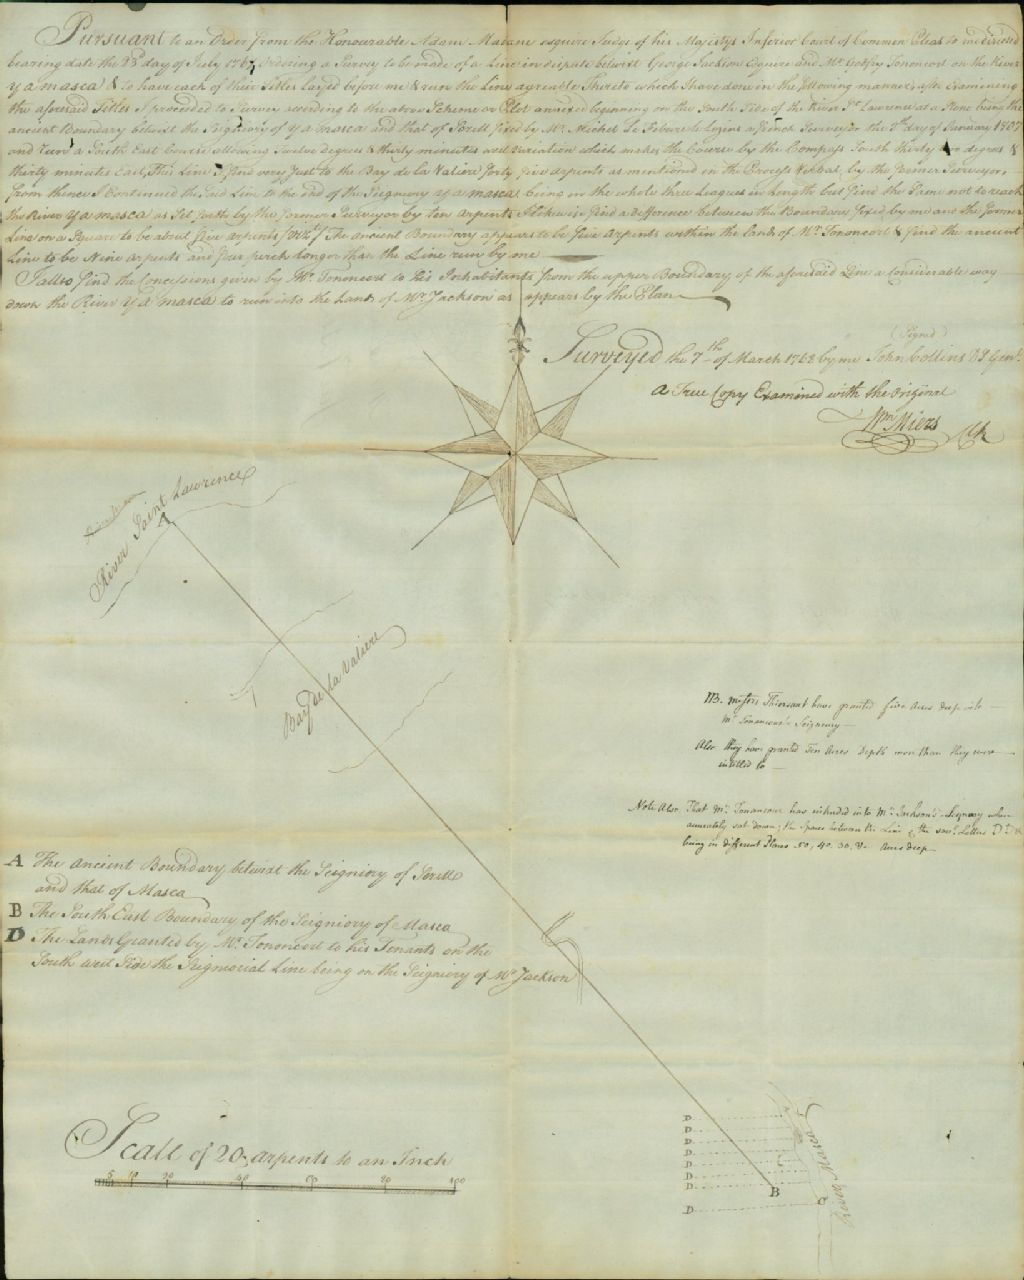 Pursuant to an Order from the Honourable Adam Mabane esquire Judge of his Majestys Inferior Court of Common Pleas to me directed
bearing date the 28th day of July 1767, Ordering a Survey to be made of a Line in dispute betwixt George Jackson Esquire and Mr. Godfry Tononcort on the River
Yamasca & to have each of their Titles layed before me & run the Line agreable Thereto which I have done in the following manner, after Examining
the aforesaid Titles I proceeded to Survey according to the above Scheme or Plot annexed beginning on the South Side of the River St. Lawrence at a Stone being the
ancient Boundary betwixt the Seigniory of Yamasca and that of Sorell fixed by Mr. Michel Le Febure a french Surveyor the day of January 1707
and run a South East Course allowing Twelve degrees & thirty minutes west variation which makes the Course by the Compass South thirty two degrees &
thirty minutes East, This Line I find very Just to the Bay de la Valiere forty five arpents as mentioned in the Process Verbal, by the former Surveyor,
from thence I Continued the said Line to the end of the Seigniory Yamasca being in the whole three Leagues in Length but find the same not to reach
the River Yamasca as Set forth by the former Surveyor by ten arpents I likewise find a difference between the Boundary fixed by me and the former
Line on a Square to be about five arpents (Vizt) The ancient Boundary appears to be five arpents within the land of Mr. Tononcort & find the ancient
Line to be Nine arpents and four perch longer than the Line run by me
I allso find the Concessions given by Mr. Tononcort to his Inhabitants from the upper Boundary of the aforesaid Line a Considerable way
down the River Yamasca to run into the Land of Mr. Jackson as appears by the Plan
(Signed)
Surveyed the 7th of March 1768 by me John Collins D.S. Genl.
A True Copy Examined with the Original
Wm. Miers Clk
River Saint Lawrence
A
Bay de la Valiere
NB. Thiersant have granted five Acres deep into
Mr. Tonancour's Seigneury
Also they have granted Ten Acres Depth more than they were
intitled to
Note Also That Mr. Tonancour has intruded into Mr. Jackson's Seigneury when
accurately sat down; the Space between the Line & the sevl. Letters D: D
being in different Places 50, 40, 30, &c. Acres deep
A The Ancient Boundary betwixt the Seigniory of Sorell
and that of Masca
B The South East Boundary of the Seigniory of Masca
D The Lands Granted by Mr. Tononcort to his Tenants on the
South west Side the Seignorial Line being on the Seigniory of Mr. Jackson
Scale of 20 arpents to an Inch
5 10 20 40 60 80 100
D
D
D
D
D
D
D
D
B
C
River Masca